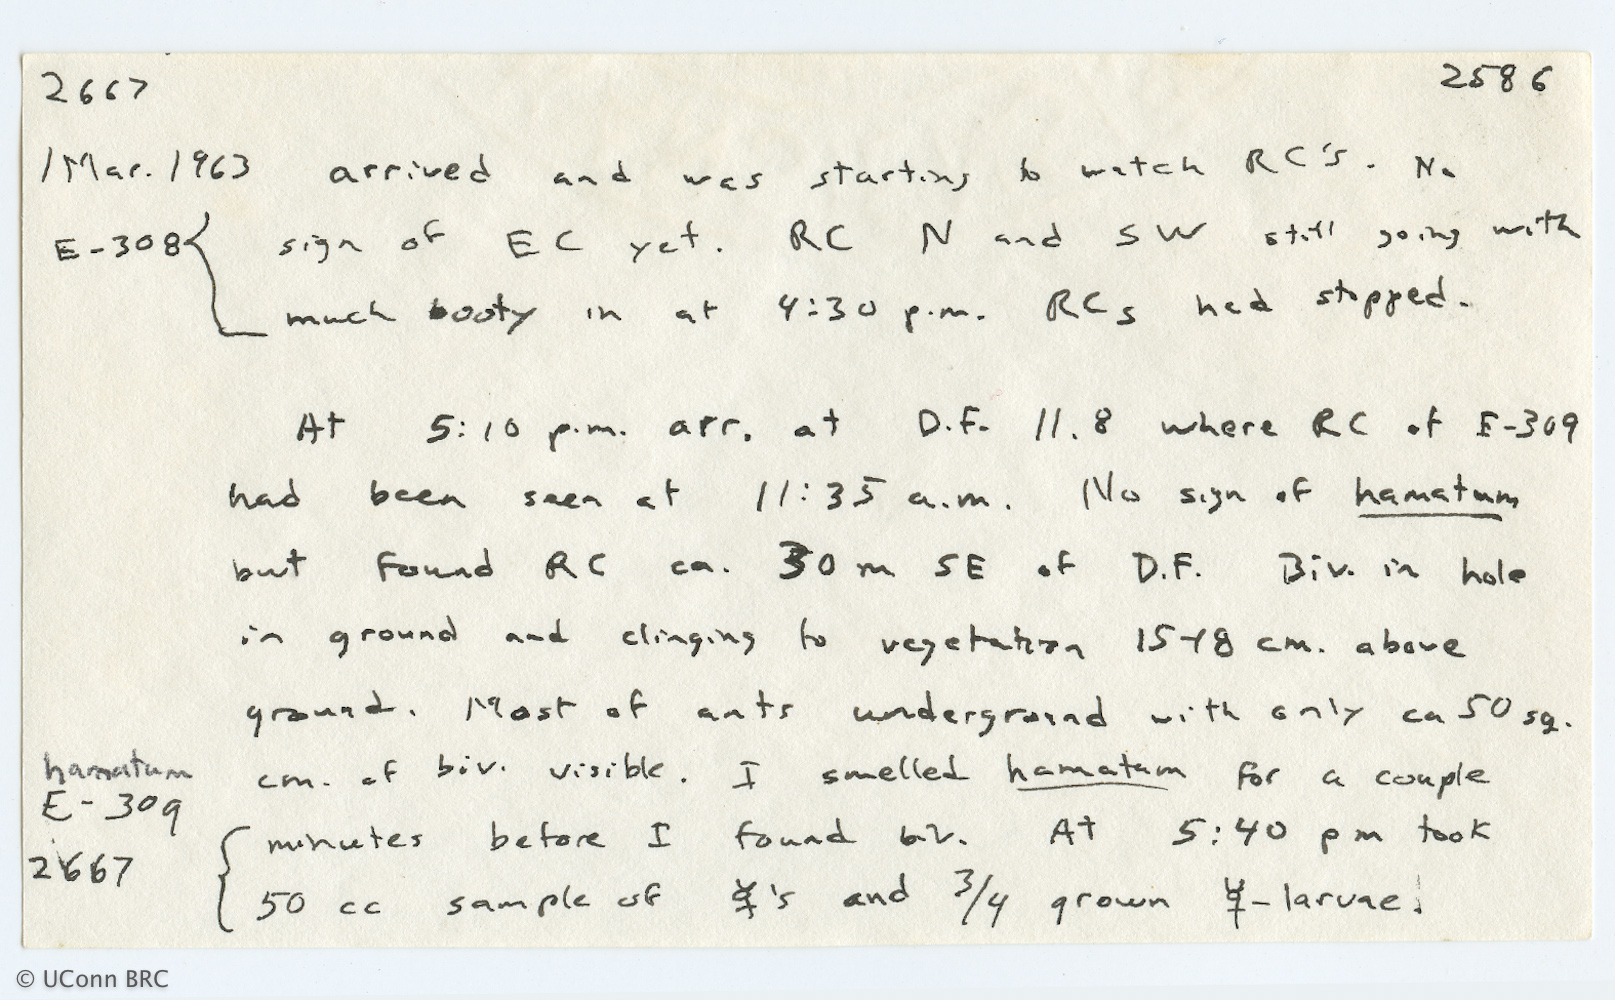 2667 2586
1 Mar. 1963 arrived and was starting to watch RC's. No
E-308 sign of EC yet. RC N and SW still going with
much booty in at 4:30 p.m. RCs had stopped.
At 5:10 p.m. arr. at D.F. 11.8 where RC of E-309
had been seen at 11:35 a.m. No sign of hamatum
but found RC ca. 30 m SE of D.F. Biv. in hole
in ground and clinging to vegetation 15-18 cm. above
ground. Most of ants underground with only ca 50 sq.
hamatum cm. of biv. visible. I smelled hamatum for a couple
E-309 minutes before I found biv. At 5:40 pm took
2667 50 cc sample of ☿'s and 3/4 grown ☿-larvae.
© UConn BRC